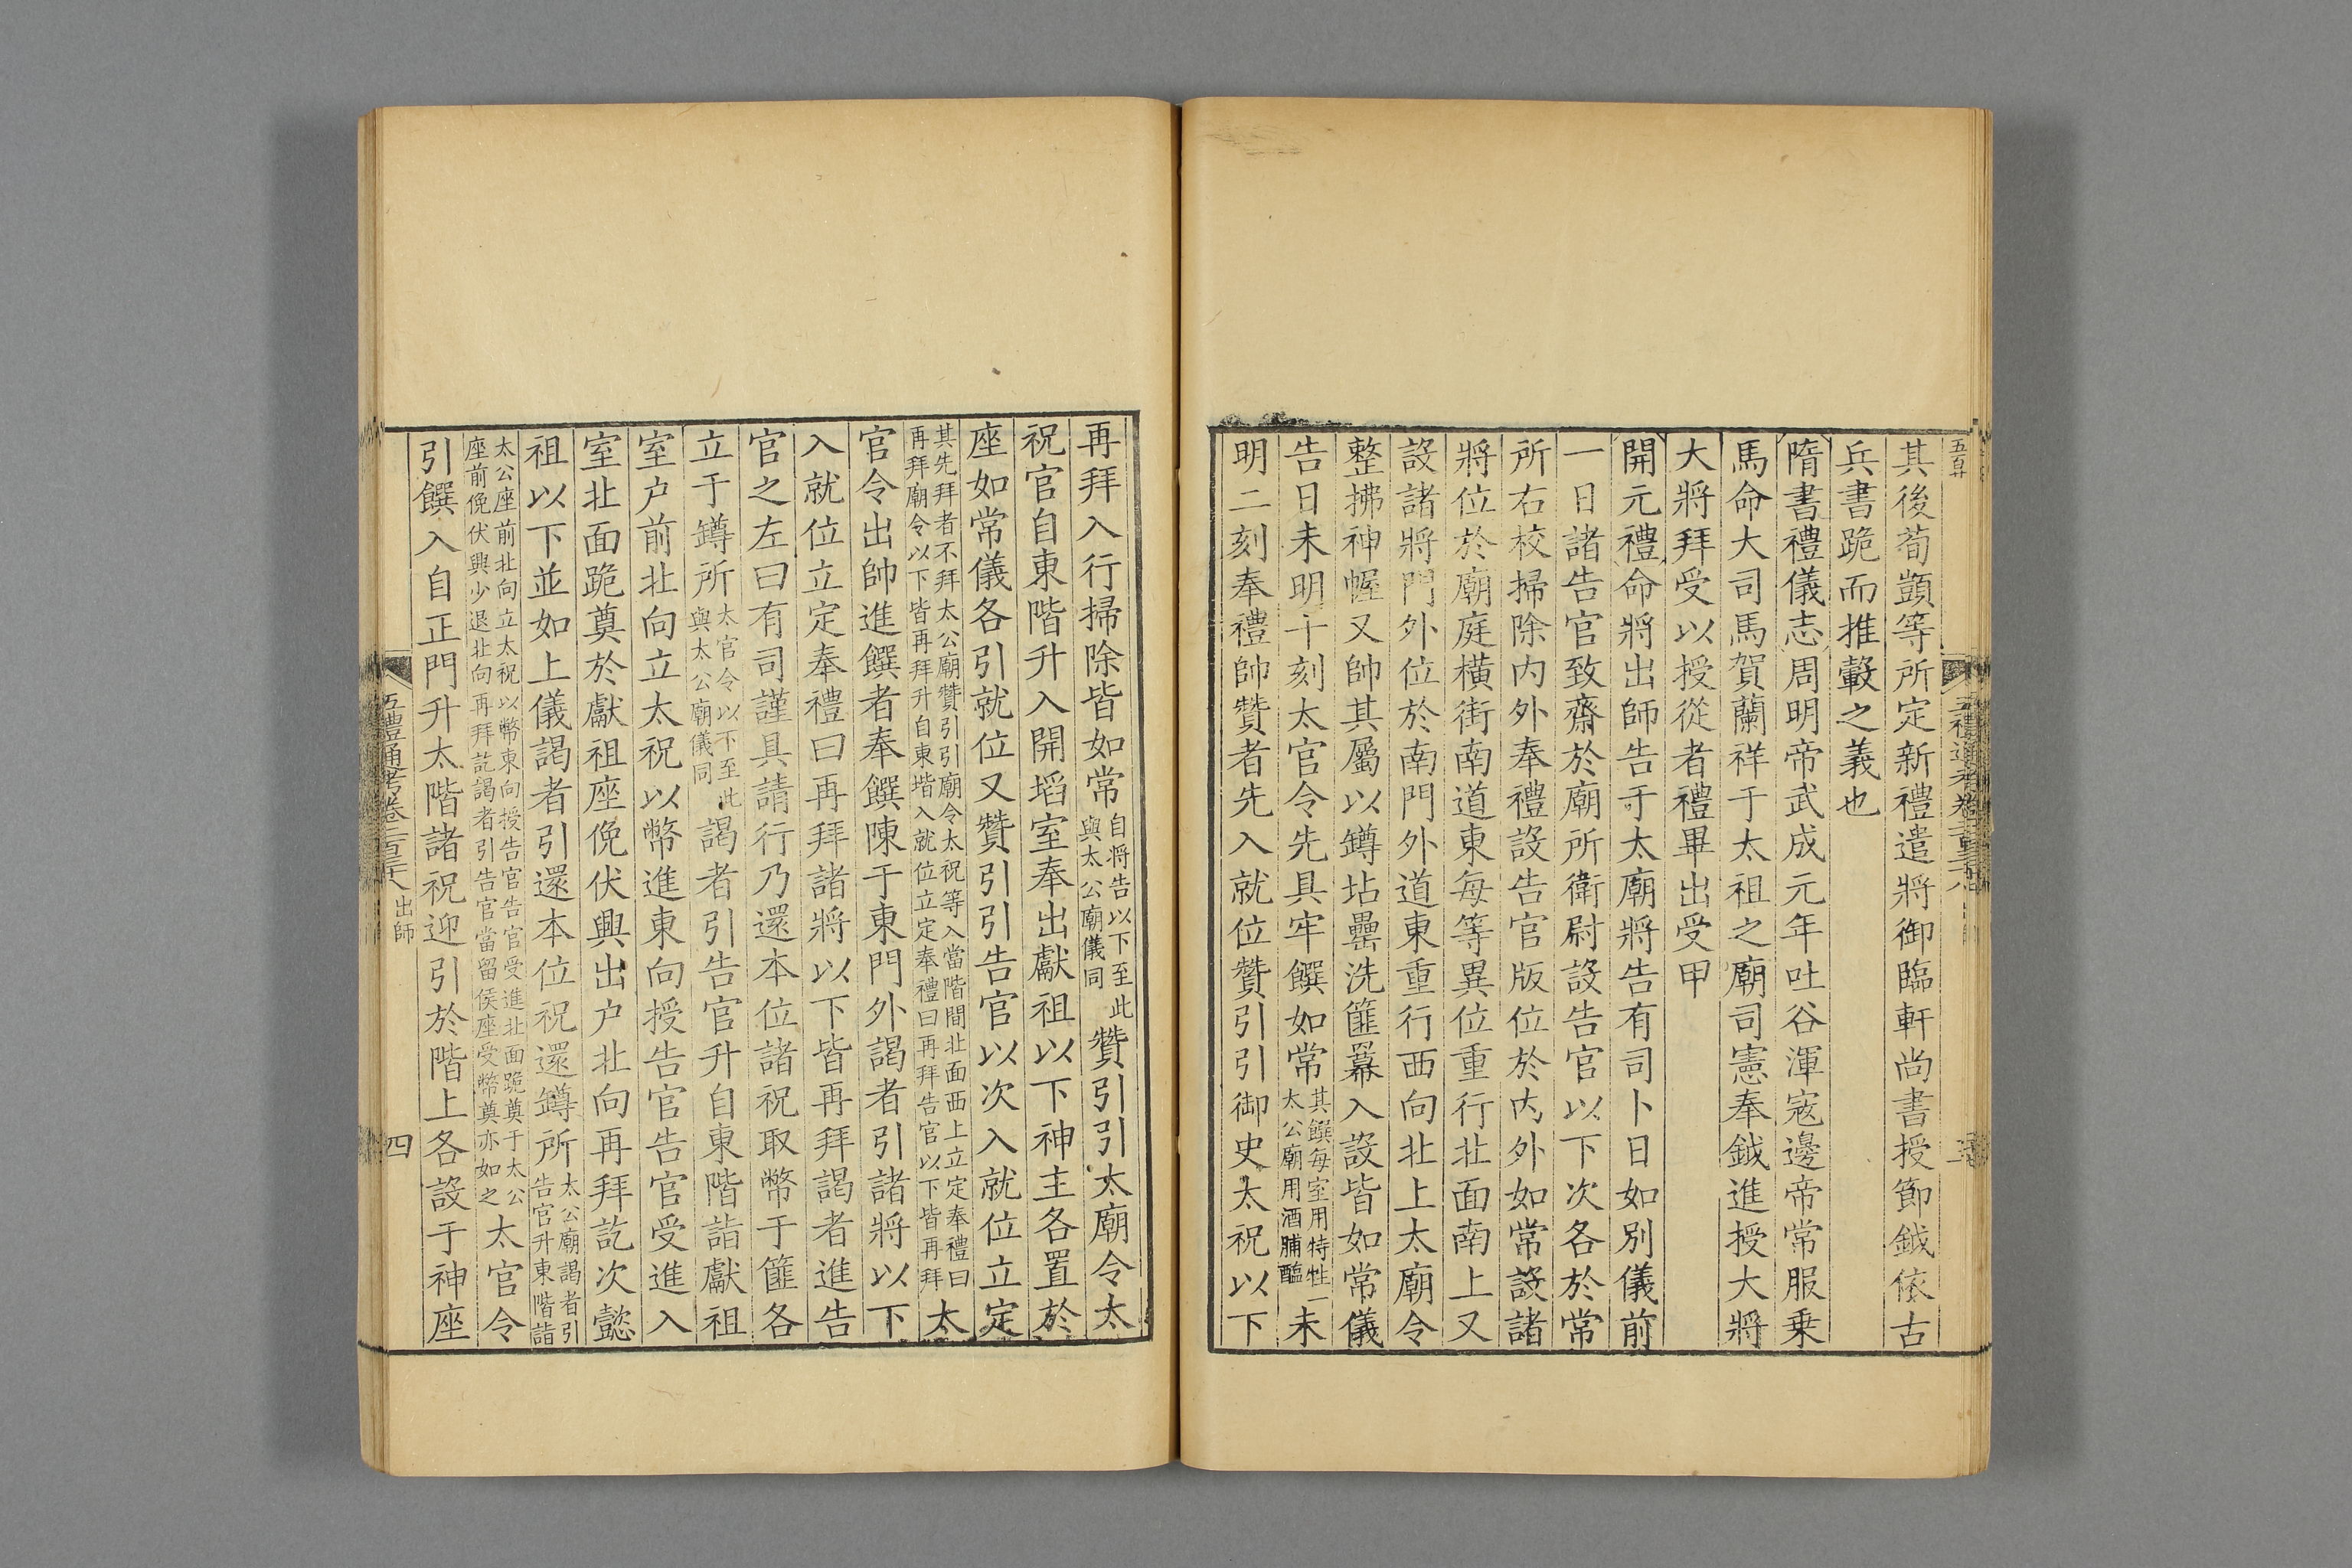 其後荀顗等所定新禮遣將御臨軒尚書授節鉞依古
兵書跪而推轂之義也
隋書禮儀志周明帝武成元年吐谷渾寇邊帝常服乗
馬命大司馬賀蘭祥于太祖之廟司憲奉鉞進授大將
大將拜受以授從者禮畢出受甲
開元禮命將出師告于太廟將告有司卜日如別儀前
一日諸告官致齋於廟所衛尉設告官以下次各於常
所右校掃除内外奉禮設告官版位於内外如常設諸
將位於廟庭横街南道東每等異位重行北面南上又
設諸將門外位於南門外道東重行西向北上太廟令
整拂神幄又帥其屬以罇坫罍洗篚羃入設皆如常儀
告日未明十刻太官令先具牢饌如常其饌每室用特牲太公廟用酒脯醢未
明二刻奉禮帥贊者先入就位贊引引御史太祝以下
再拜入行掃除皆如常自将告以下至此與太公廟儀同贊引引太廟令太
祝官自東階升入開埳室奉出獻祖以下神主各置於
座如常儀各引就位又贊引引告官以次入就位立定
其先拜者不拜太公廟贊引引廟令太祝等入當階間北面西上立定奉禮曰再拜廟令以下皆再拜升自東堦入就位立定奉禮曰再拜告官以下皆再拜太
官令出帥進饌者奉饌陳于東門外謁者引諸將以下
入就位立定奉禮曰再拜諸將以下皆再拜謁者進告
官之左曰有司謹具請行乃還本位諸祝取幣于篚各
立于罇所太官令以下至此與太公廟儀同謁者引告官升自東階詣獻祖
室户前北向立太祝以幣進東向授告官告官受進入
室北面跪奠於獻祖座俛伏興出户北向再拜訖次懿
祖以下並如上儀謁者引還本位祝還罇所太公廟謁者引告官升東階詣
太公座前北向立太祝以幣東向授告官告官受進北面跪奠于太公座前俛伏興少退北向再拜訖謁者引告官當留侯座受幣奠亦如之太官令
引饌入自正門升太階諸祝迎引於階上各設于神座
五禮通考卷二百三十八 出師
四